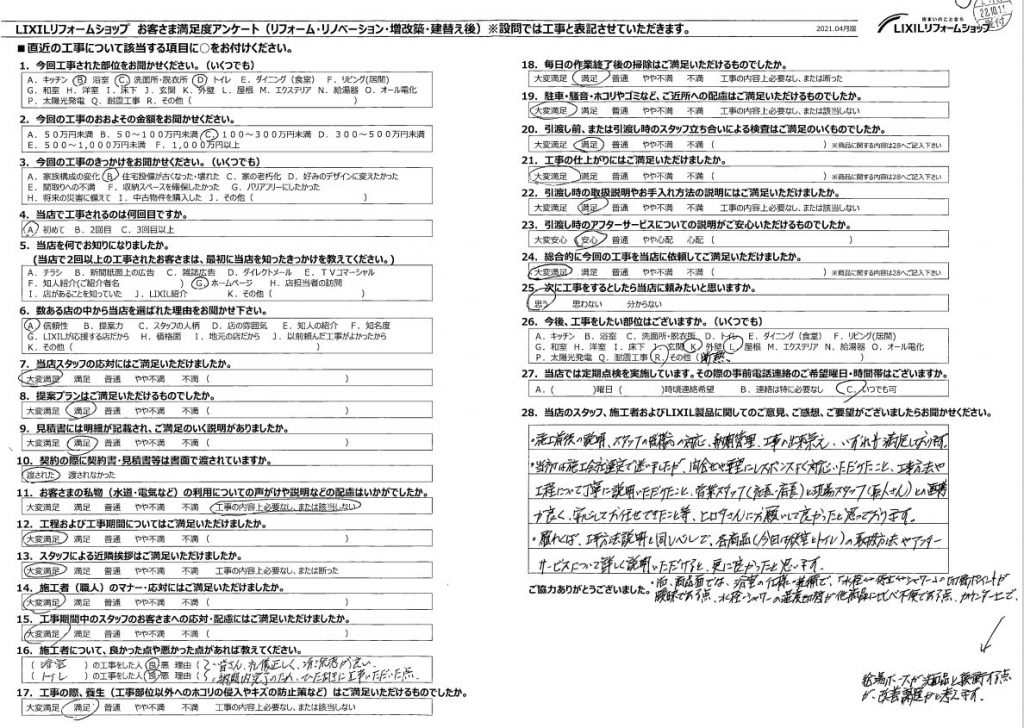 LIXILリフォームショップ お客さま満足度アンケート（リフォーム・リノベーション・増改築・建替え後）※設問では工事と表記させていただきます。
2021.04月版
22.10.1
受付
住まいのことなら
LIXILリフォームショップ
■ 直近の工事について該当する項目に○をお付けください。
1．今回工事された部位をお聞かせください。（いくつでも）
A．キッチン B．浴室 C．洗面所・脱衣所 D．トイレ E．ダイニング（食堂） F．リビング(居間)
G．和室 H．洋室 I．床下 J．玄関 K．外壁 L．屋根 M．エクステリア N．給湯器 O．オール電化
P．太陽光発電 Q．耐震工事 R．その他（ ）
2．今回の工事のおおよその金額をお聞かせください。
A．50万円未満 B．50～100万円未満 C．100～300万円未満 D．300～500万円未満
E．500～1,000万円未満 F．1,000万円以上
3．今回の工事のきっかけをお聞かせください。（いくつでも）
A．家族構成の変化 B．住宅設備が古くなった・壊れた C．家の老朽化 D．好みのデザインに変えたかった
E．間取りへの不満 F．収納スペースを確保したかった G．バリアフリーにしたかった
H．将来の災害に備えて I．中古物件を購入した J．その他（ ）
4．当店で工事されるのは何回目ですか。
A．初めて B．2回目 C．3回目以上
5．当店を何でお知りになりましたか。
(当店で2回以上の工事されたお客さまは、最初に当店を知ったきっかけを教えてください。)
A．チラシ B．新聞紙面上の広告 C．雑誌広告 D．ダイレクトメール E．TVコマーシャル
F．知人紹介(ご紹介者名 ) G．ホームページ H．店担当者の訪問
I．店があることを知っていた J．LIXIL紹介 K．その他（ ）
6．数ある店の中から当店を選ばれた理由をお聞かせ下さい。
A．信頼性 B．提案力 C．スタッフの人柄 D．店の雰囲気 E．知人の紹介 F．知名度
G．LIXILが応援する店だから H．価格面 I．地元の店だから J．以前頼んだ工事がよかったから
K．その他（ ）
7．当店スタッフの応対にはご満足いただけましたか。
大変満足 満足 普通 やや不満 不満（ ）
8．提案プランはご満足いただけるものでしたか。
大変満足 満足 普通 やや不満 不満（ ）
9．見積書には明細が記載され、ご満足のいく説明がありましたか。
大変満足 満足 普通 やや不満 不満（ ）
10．契約の際に契約書・見積書等は書面で渡されていますか。
渡された 渡されなかった
11．お客さまの私物（水道・電気など）の利用についての声がけや説明などの配慮はいかがでしたか。
大変満足 満足 普通 やや不満 不満 工事の内容上必要なし、または該当しない
12．工程および工事期間についてはご満足いただけましたか。
大変満足 満足 普通 やや不満 不満（ ）
13．スタッフによる近隣挨拶はご満足いただけましたか。
大変満足 満足 普通 やや不満 不満 工事の内容上必要なし、または断った
14．施工者（職人）のマナー・応対にはご満足いただけましたか。
大変満足 満足 普通 やや不満 不満（ ）
15．工事期間中のスタッフのお客さまへの応対・配慮にはご満足いただけましたか。
大変満足 満足 普通 やや不満 不満（ ）
16．施工者について、良かった点や悪かった点があれば教えてください。
（ 浴室 ）の工事をした人 良 悪 理由（ 皆さん、礼儀正しく、
（ トイレ ）の工事をした人 良 悪 理由（
17．工事の際、養生（工事部位以外へのホコリの侵入やキズの防止策など）はご満足いただけるものでしたか。
大変満足 満足 普通 やや不満 不満 工事の内容上必要なし、または該当しない
18．毎日の作業終了後の掃除はご満足いただけるものでしたか。
大変満足 満足 普通 やや不満 不満 工事の内容上必要なし、または断った
19．駐車・騒音・ホコリやゴミなど、ご近所への配慮はご満足いただけるものでしたか。
大変満足 満足 普通 やや不満 不満 工事の内容上必要なし、または該当しない
20．引渡し前、または引渡し時のスタッフ立ち合いによる検査はご満足のいくものでしたか。
大変満足 満足 普通 やや不満 不満（ ）※商品に関する内容は28へご記入下さい
21．工事の仕上がりにはご満足いただけましたか。
大変満足 満足 普通 やや不満 不満（ ）※商品に関する内容は28へご記入下さい
22．引渡し時の取扱説明やお手入れ方法の説明にはご満足いただけましたか。
大変満足 満足 普通 やや不満 不満 工事の内容上必要なし、または該当しない
23．引渡し時のアフターサービスについての説明がご安心いただけるものでしたか。
大変安心 安心 普通 やや心配 心配（ ）
24．総合的に今回の工事を当店に依頼してご満足いただけましたか。
大変満足 満足 普通 やや不満 不満（ ）※商品に関する内容は28へご記入下さい
25．次に工事をするとしたら当店に頼みたいと思いますか。
思う 思わない 分からない
26．今後、工事をしたい部位はございますか。（いくつでも）
A．キッチン B．浴室 C．洗面所・脱衣所 D．トイレ E．ダイニング（食堂） F．リビング(居間)
G．和室 H．洋室 I．床下 J．玄関 K．外壁 L．屋根 M．エクステリア N．給湯器 O．オール電化
P．太陽光発電 Q．耐震工事 R．その他（ 断熱 ）
27．当店では定期点検を実施しています。その際の事前電話連絡のご希望曜日・時間帯はございますか。
A．（ ）曜日（ ）時頃連絡希望 B．連絡は特に必要なし C．いつでも可
28．当店のスタッフ、施工者およびLIXIL製品に関してのご意見、ご感想、ご要望がございましたらお聞かせください。
・施工前後の説明、スタッフの皆様の対応、新期管理、工事の出来栄え、いずれも満足しております。
・当初は施工会社選定で迷いましたが、問合せや要望にレスポンス良く対応いただけたこと、工事方法や
工程について丁寧に説明いただけたこと、営業スタッフ(社長・店長)と現場スタッフ(職人さん)との連携
が良く、安心してお任せできたこと等、ヒロタさんにお願いして良かったと思っております。
・願わくば、工事方法説明と同レベルで、各商品(今回は浴室とトイレ)の取扱方法やアフター
サービスについて詳しく説明いただけると、更に良かったと思います。
ご協力ありがとうございました。
・尚、商品面では、浴室の仕様・
曖昧である点、水栓・シャワーの温度 が他商品に比べ不便である点、カウンター上で、
が、改善 と考えます。